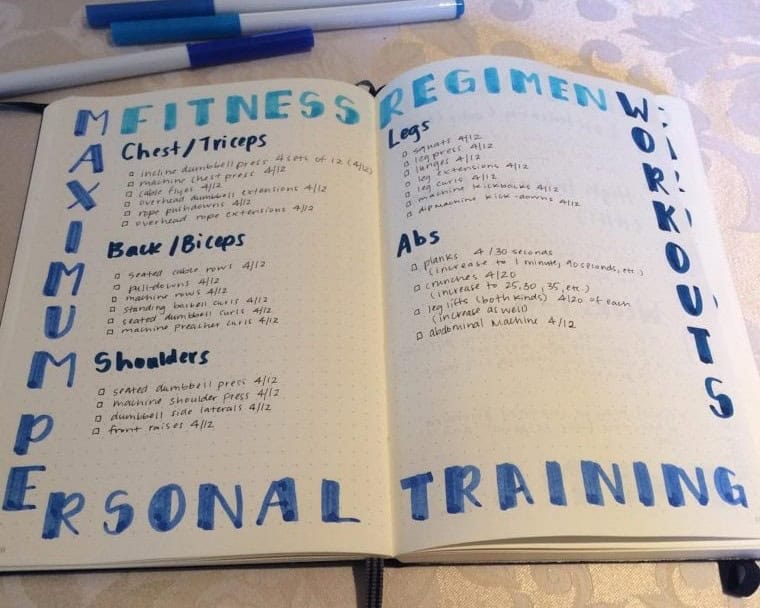 FITNESS REGIMEN
MAXIMUM
WORKOUTS
PERSONAL TRAINING
Chest/Triceps
incline dumbbell press 4 sets of 12 (4/12)
machine chest press 4/12
cable flyes 4/12
overhead dumbbell extensions 4/12
rope pushdowns 4/12
overhead rope extensions 4/12
Back/Biceps
seated cable rows 4/12
pull-downs 4/12
machine rows 4/12
standing barbell curls 4/12
seated dumbbell curls 4/12
machine preacher curls 4/12
Shoulders
seated dumbbell press 4/12
machine shoulder press 4/12
dumbbell side laterals 4/12
front raises 4/12
Legs
squats 4/12
leg press 4/12
lunges 4/12
leg extensions 4/12
leg curls 4/12
machine kickbacks 4/12
dip machine kick-downs 4/12
Abs
planks 4/30 seconds
(increase to 1 minute, 90 seconds, etc.)
crunches 4/20
(increase to 25, 30, 35, etc.)
leg lifts (both kinds) 4/20 of each
(increase as well)
abdominal machine 4/12